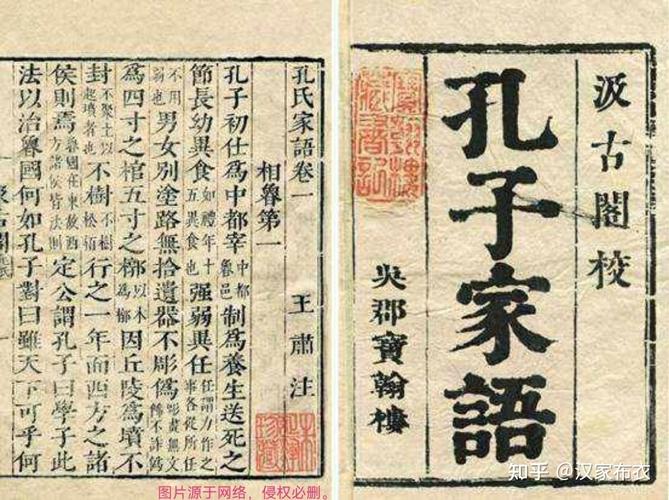 汲古閣校
孔子家語
吳郡寶翰樓
孔氏家語卷一 王肅注
相魯第一
孔子初仕爲中都宰中都魯邑制爲養生送死之
節長幼異食如禮年十五異食也強弱異任任謂力作之事各從所任
不用弱也男女別塗路無拾遺器不彫僞彫畫無文飾不詐僞
爲四寸之棺五寸之槨以木爲槨因丘陵爲墳不
封不聚土以起墳者也不樹不樹松栢行之一年而四方之諸
侯則焉魯國在東故西方諸侯皆法則定公謂孔子曰學子此
法以治魯國何如孔子對曰雖天下可乎何
图片源于网络，侵权必删。
知乎 @汉家布衣